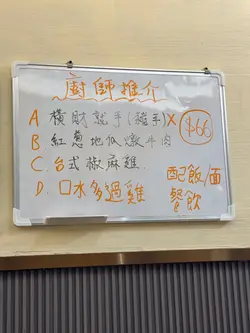 廚師推介
A 橫財就手(豬手)X $66
B 紅蔥地瓜燉牛肉
C. 台式椒麻雞.
D. 口水多過雞
配飯/面
餐飲